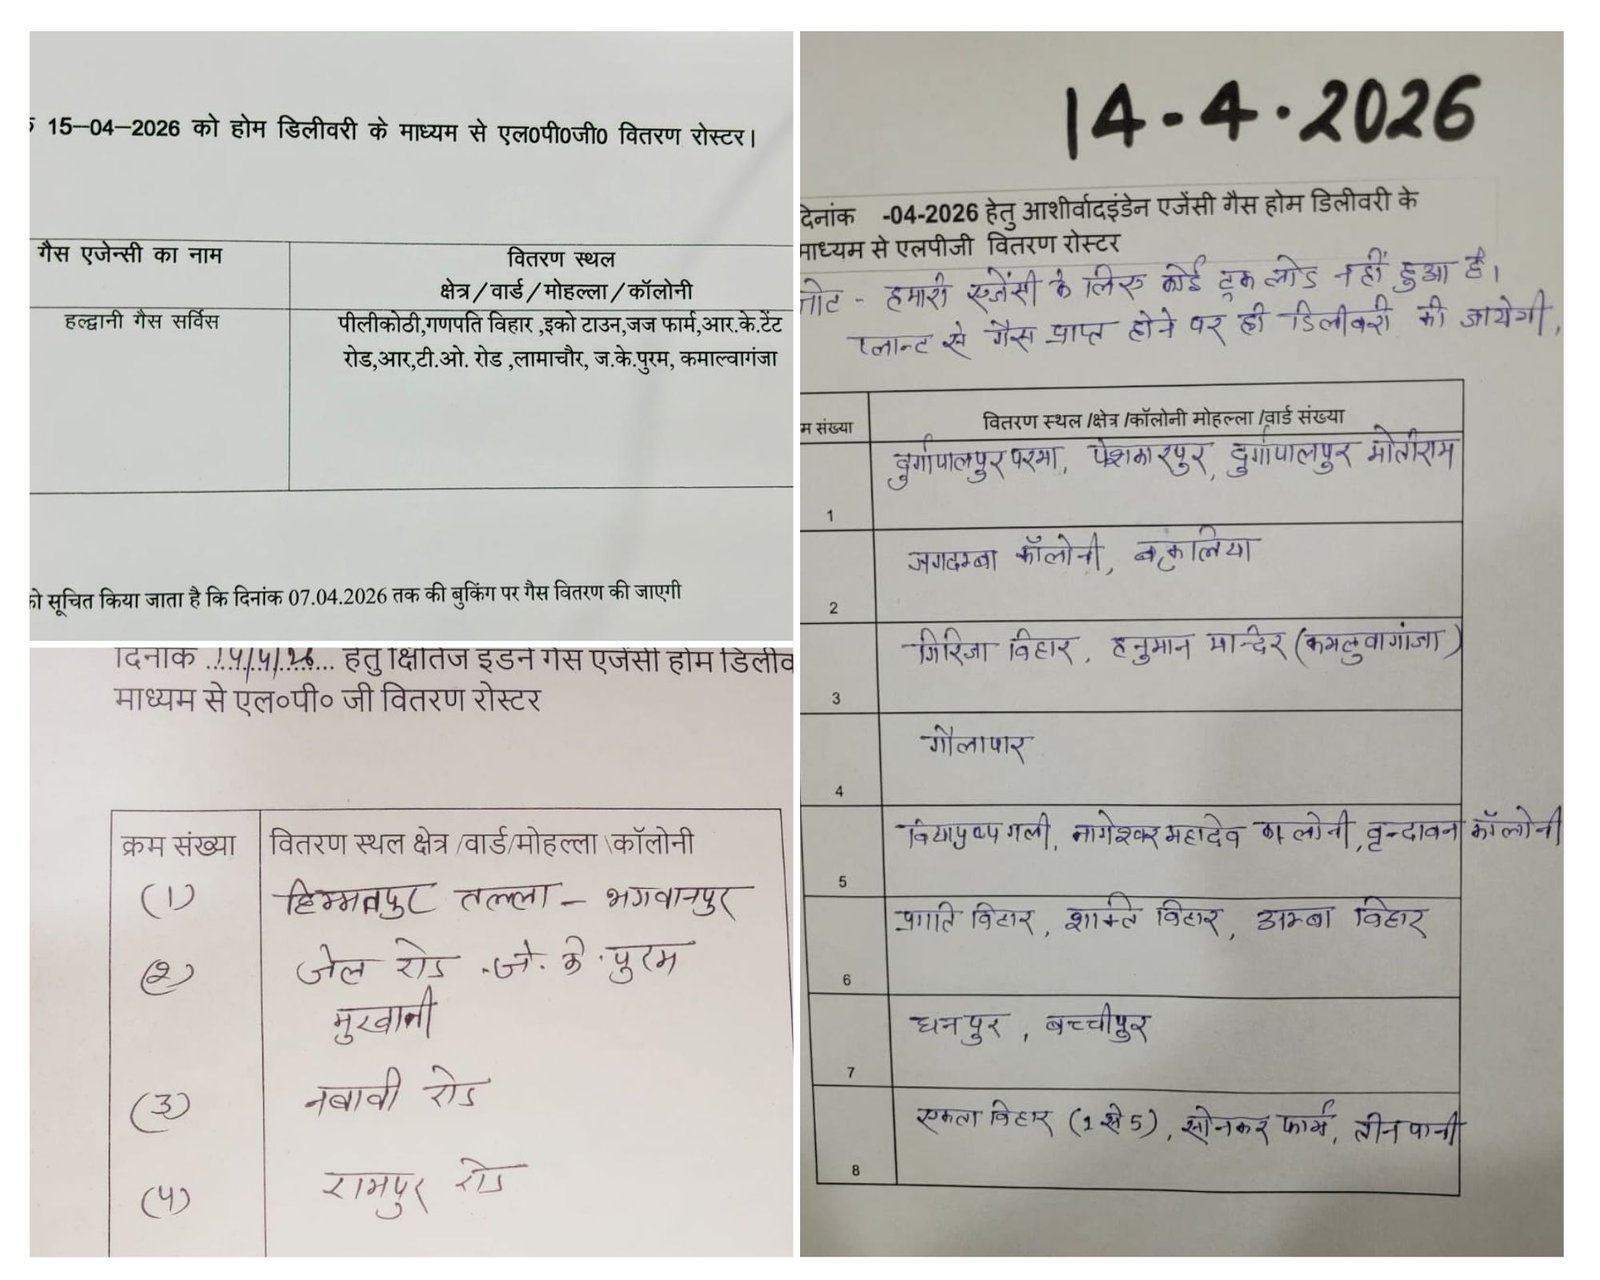 15–04–2026 को होम डिलीवरी के माध्यम से एल0पी0जी0 वितरण रोस्टर।
गैस एजेन्सी का नाम
वितरण स्थल
क्षेत्र/वार्ड/मोहल्ला/कॉलोनी
हल्द्वानी गैस सर्विस
पीलीकोठी,गणपति विहार ,इको टाउन,जज फार्म,आर.के.टेंट
रोड,आर,टी.ओ. रोड ,लामाचौर, ज.के.पुरम, कमाल्वागंजा
को सूचित किया जाता है कि दिनांक 07.04.2026 तक की बुकिंग पर गैस वितरण की जाएगी
दिनांक हेतु क्षितिज इंडेन गैस एजेंसी होम डिलीव
माध्यम से एल०पी० जी वितरण रोस्टर
क्रम संख्या
वितरण स्थल क्षेत्र/वार्ड/मोहल्ला\कॉलोनी
(1) हिम्मतपुर तल्ला – भगवानपुर
(2) जेल रोड .जे. के . पुरम
मुखानी
(3) नबावी रोड
(4) रामपुर रोड
14-4.2026
दिनांक -04-2026 हेतु आशीर्वादइंडेन एजेंसी गैस होम डिलीवरी के
माध्यम से एलपीजी वितरण रोस्टर
नोट - हमारी एजेंसी के लिए कोई ट्रक लोड नहीं हुआ है।
प्लान्ट से गैस प्राप्त होने पर ही डिलीवरी की जायेगी,
म संख्या
वितरण स्थल /क्षेत्र /कॉलोनी मोहल्ला /वार्ड संख्या
1 दुर्गापालपुर परमा, पेशकारपुर, दुर्गापालपुर मोतीराम
2 जगदम्बा कॉलोनी, बकुलिया
3 गिरिजा विहार, हनुमान मन्दिर (कमलुवागांजा)
4 गौलापार
5 विद्यापुष्प गली, नागेश्वर महादेव कालोनी, वृन्दावन कॉलोनी
6 प्रगति विहार, शक्ति विहार, अम्बा विहार
7 धनपुर, बच्चीपुर
8 एकता विहार (1 से 5), सोनकर फार्म, तीन पानी